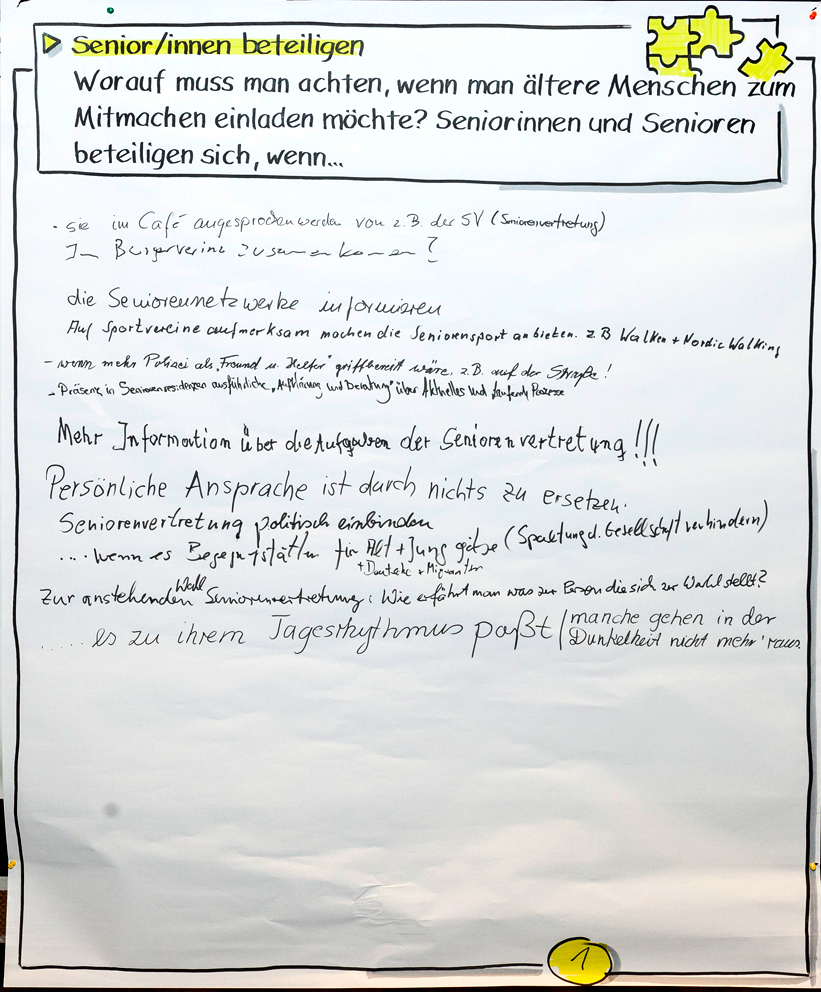 Senior/innen beteiligen
Worauf muss man achten, wenn man ältere Menschen zum
Mitmachen einladen möchte? Seniorinnen und Senioren
beteiligen sich, wenn...
- sie im Café angesprochen werden von z.B. der SV (Seniorenvertretung)
Im Bürgervereine zusammenkommen?
die Seniorennetzwerke informieren
Auf Sportvereine aufmerksam machen die Seniorensport anbieten. z B Walken + Nordic Walking
- wenn mehr Polizei als "Freund u. Helfer" griffbereit wäre, z.B. auf der Straße!
- Präsenz in Seniorenresidenzen ausführliche "Aufklärung und Beratung" über Aktuelles und laufende Prozesse
Mehr Information über die Aufgaben der Seniorenvertretung!!!
Persönliche Ansprache ist durch nichts zu ersetzen.
Seniorenvertretung politisch einbinden
.... wenn es Begegnstätten für Alt + Jung gäbe (Spaltung d. Gesellschaft verhindern)
+ Deutsche + Migranten
Zur anstehenden Wahl Seniorenvertretung: Wie erfährt man was zur Person die sich zur Wahl stellt?
..... es zu ihrem Tagesrhythmus paßt / manche gehen in der
Dunkelheit nicht mehr 'raus.
1